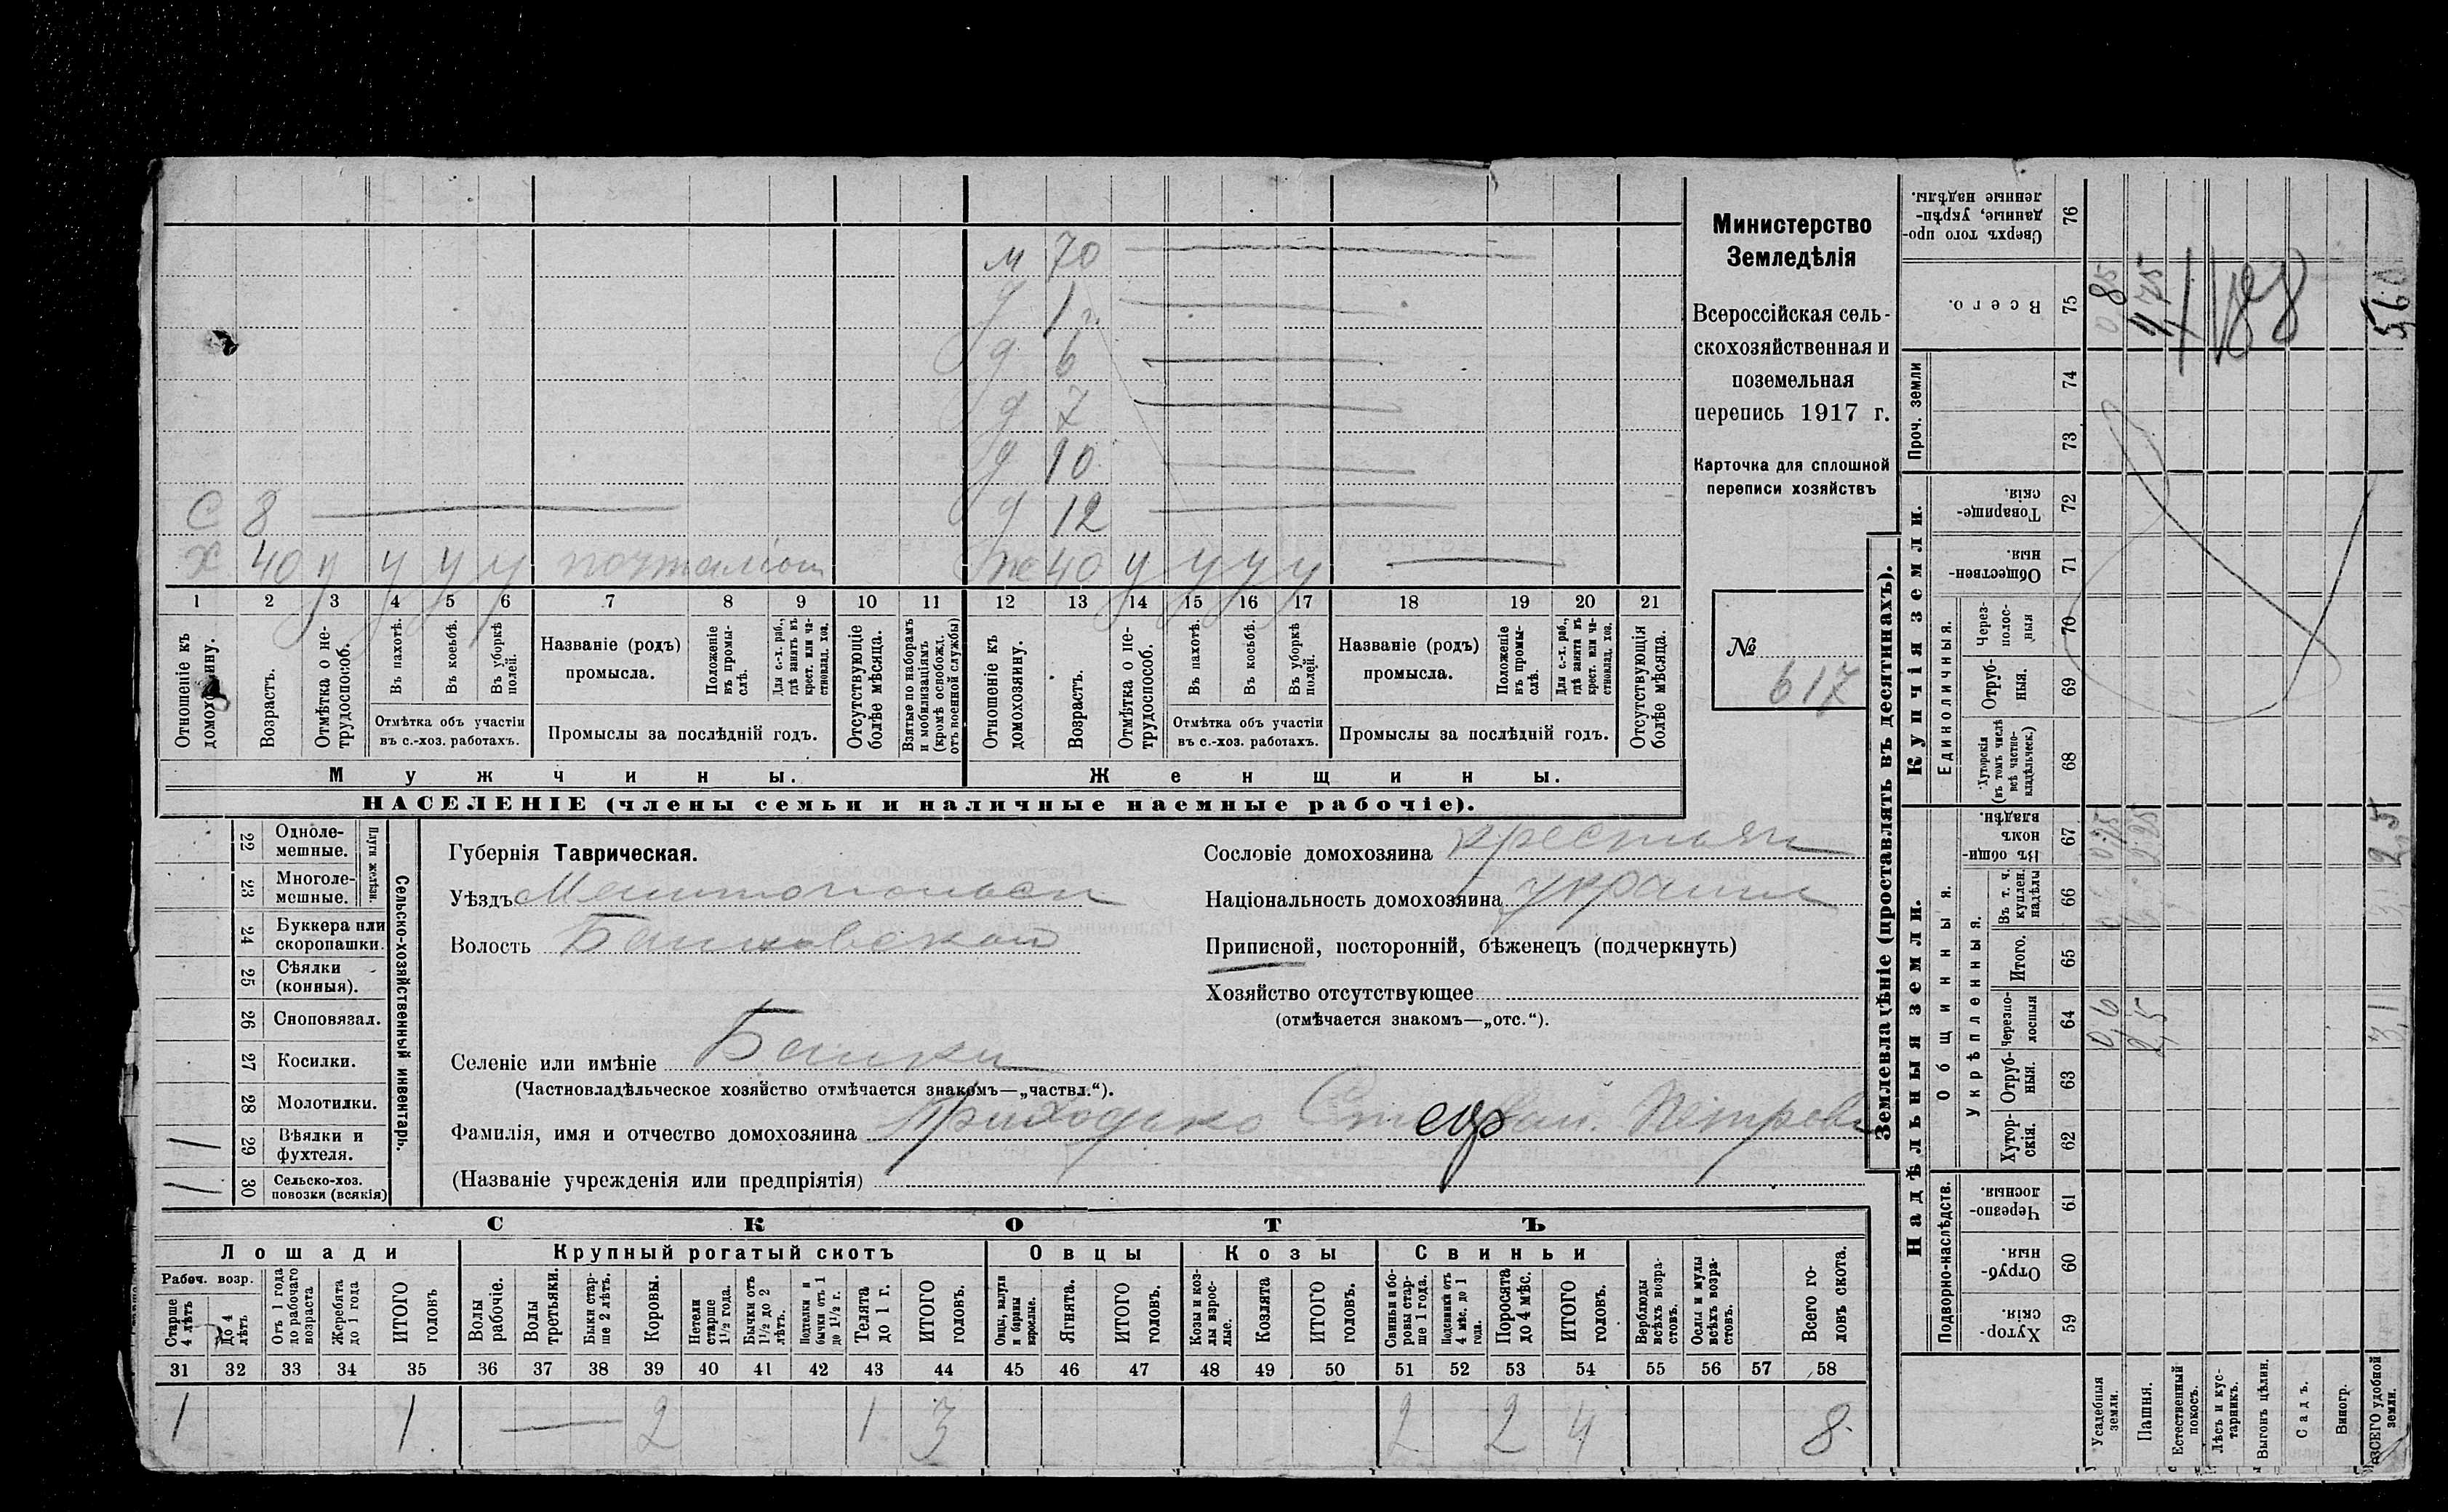 м 70
д 1 г.
д 6
д 7
д 10
С 8 д 12
х 40 у у у у почталіон ж 40 у у у у
1 2 3 4 5 6 7 8 9 10 11 12 13 14 15 16 17 18 19 20 21
Отношеніе къ домохозяину.
Возрастъ.
Отмѣтка о не-трудоспособ.
Въ пахотѣ.
Въ косьбѣ.
Въ уборкѣ полей.
Отмѣтка объ участіи
въ с.-хоз. работахъ.
Названіе (родъ)
промысла.
Положеніе въ промы-слѣ.
Для с.-х. раб., гдѣ занятъ въ крест. или ча-стновлад. хоз.
Промыслы за послѣдній годъ.
Отсутствующіе болѣе мѣсяца.
Взятые по наборамъ и мобилизаціямъ (кромѣ освобожд. отъ военной службы)
Отношеніе къ домохозяину.
Возрастъ.
Отмѣтка о не-трудоспособ.
Въ пахотѣ.
Въ косьбѣ.
Въ уборкѣ полей.
Отмѣтка объ участіи
въ с.-хоз. работахъ.
Названіе (родъ)
промысла.
Положеніе въ промы-слѣ.
Для с.-х. раб., гдѣ занята въ крест. или ча-стновлад. хоз.
Промыслы за послѣдній годъ.
Отсутствующія болѣе мѣсяца.
Мужчины. Женщины.
НАСЕЛЕНІЕ (члены семьи и наличные наемные рабочіе).
Министерство
Земледѣлія
Всероссійская сель-
скохозяйственная и
поземельная
перепись 1917 г.
Карточка для сплошной
переписи хозяйствъ
№ 617
22 Одноле-мешные.
23 Многоле-мешные.
Плуги желѣзн.
24 Буккера или скоропашки.
25 Сѣялки (конныя).
26 Сноповязал.
27 Косилки.
28 Молотилки.
1 29 Вѣялки и фухтеля.
1 30 Сельско-хоз. повозки (всякія)
Сельско-хозяйственный инвентарь.
Губернія Таврическая.
Уѣздъ Мелитопольск
Волость Балковской
Селеніе или имѣніе Балки
(Частновладѣльческое хозяйство отмѣчается знакомъ—„частвл.“).
Фамилія, имя и отчество домохозяина Приходько Стефан. Петров
(Названіе учрежденія или предпріятія)
Сословіе домохозяина крестьян
Національность домохозяина украин
Приписной, посторонній, бѣженецъ (подчеркнуть)
Хозяйство отсутствующее
(отмѣчается знакомъ—„отс.“).
СКОТЪ
Лошади Крупный рогатый скотъ Овцы Козы Свиньи
Рабоч. возр.
Старше 4 лѣтъ
До 4 лѣтъ
Отъ 1 года до рабочаго возраста
Жеребята до 1 года
ИТОГО головъ
Волы рабочіе.
Волы третьяки.
Быки стар-ше 2 лѣтъ.
Коровы.
Нетели старше 1½ года.
Бычки отъ 1½ до 2 лѣтъ.
Подтелки и бычки отъ 1 до 1½ г.
Телята до 1 г.
ИТОГО головъ.
Овцы, валухи и бараны взрослые.
Ягнята.
ИТОГО головъ.
Козы и коз-лы взрос-лые.
Козлята
ИТОГО головъ.
Свиньи и бо-ровы стар-ше 1 года.
Подсвинки отъ 4 мѣс. до 1 года.
Поросята до 4 мѣс.
ИТОГО головъ.
Верблюды всѣхъ возра-стовъ.
Ослы и мулы всѣхъ возра-стовъ.
Всего го-ловъ скота.
31 32 33 34 35 36 37 38 39 40 41 42 43 44 45 46 47 48 49 50 51 52 53 54 55 56 57 58
1 1. — 2 1 3 2 2 4 8.
Землевладѣніе (проставлять въ десятинахъ).
Купчія земли.
Надѣльныя земли.
76 Сверхъ того про-данные, укрѣп-ленные надѣлы.
75 Всего.
Проч. земли
74
73
72 Товарище-скія.
71 Обществен-ныя.
Единоличныя.
70 Через-полос-ныя
69 Отруб-ныя.
68 Хуторскія (въ томъ числѣ всѣ частно-владѣльческ.)
67 Въ общи-номъ владѣн.
Общинныя.
Укрѣпленныя.
66 Въ т. ч. куплен. надѣлы
65 Итого.
64 Черезпо-лосныя
63 Отруб-ныя.
62 Хутор-скія.
Подворно-наслѣдств.
61 Черезпо-лосныя.
60 Отруб-ныя.
59 Хутор-скія.
Усадебныя земли.
Пашня.
Естественный покосъ.
Лѣсъ и кус-тарникъ.
Выгонъ цѣлин.
Садъ.
Виногр.
ВСЕГО удобной земли.
0 85
4 75
188
5,60
2,5
0,6
2,5
3,1